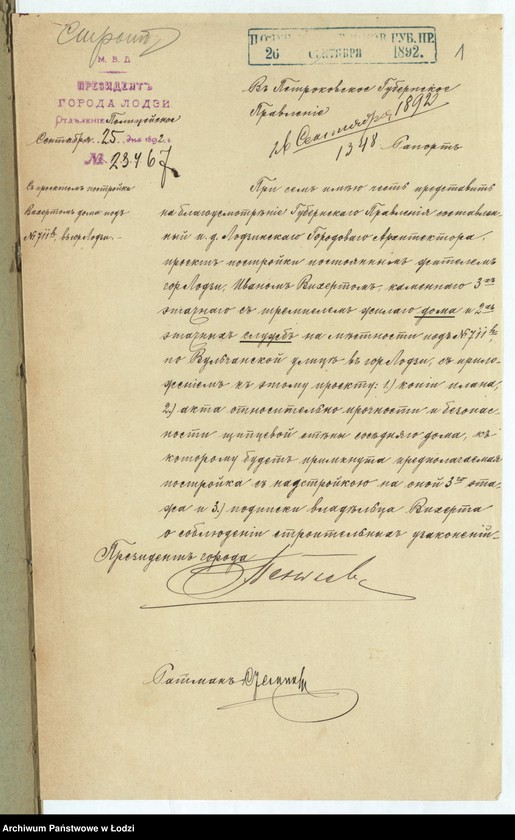 Строит
М. В. Д.
ПРЕЗИДЕНТЪ
ГОРОДА ЛОДЗИ
Отдѣленіе Полицейское
Сентября 25 дня 1892 г.
№ 23467
Съ проектомъ постройки
Вихертомъ дома подъ
№ 711 б, въ гор. Лодзи.
ГУБ. ПР.
26 СЕНТЯБРЯ 1892.
1
Въ Петроковское Губернское
Правленіе
26 Сентября 1892
1348
Рапортъ
При семъ имѣю честь представить
на благоусмотрѣніе Губернскаго Правленія составлен-
ный и. д. Лодзинскаго Городоваго Архитектора,
проектъ постройки постояннымъ жителемъ
гор. Лодзи, Иваномъ Вихертомъ, каменнаго 3хъ
этажнаго съ стремпелемъ жилаго дома и 2хъ
этажныхъ службъ на мѣстности подъ № 711 б
по Вульчанской улицѣ въ гор. Лодзи, съ прило-
женіемъ къ этому проекту: 1) копіи плана,
2) акта относительно прочности и безопас-
ности щипцевой стѣны сосѣдняго дома, къ
которому будетъ примкнута предполагаемая
постройка съ надстройкою на оной 3го эта-
жа и 3) подписки владѣльца Вихерта
о соблюденіи строительныхъ узаконеній.
Президентъ города
Пеньковъ
Ратманъ
Archiwum Państwowe w Łodzi